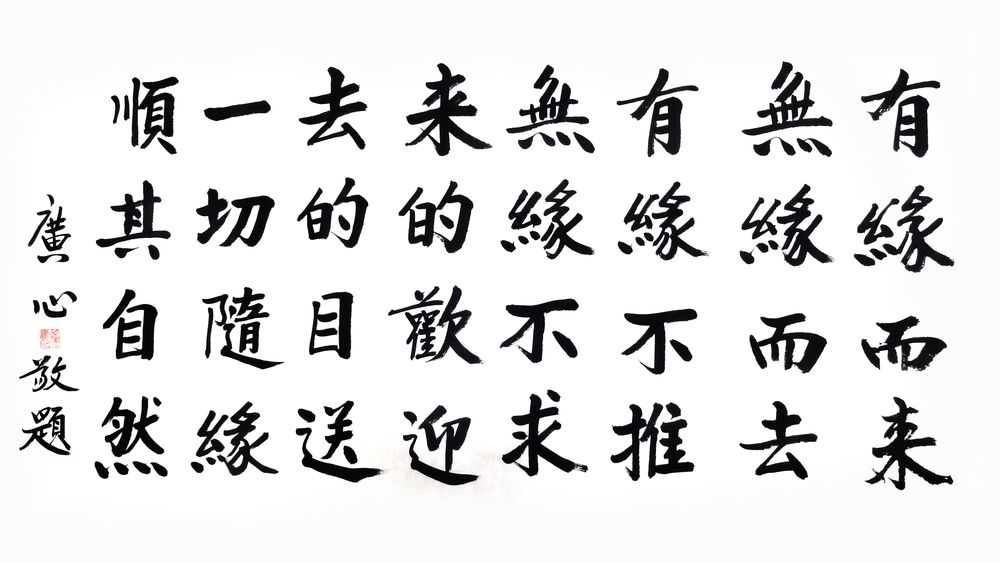 有緣而来
無緣而去
有緣不推
無緣不求
来的歡迎
去的目送
一切隨緣
順其自然
廣心敬題